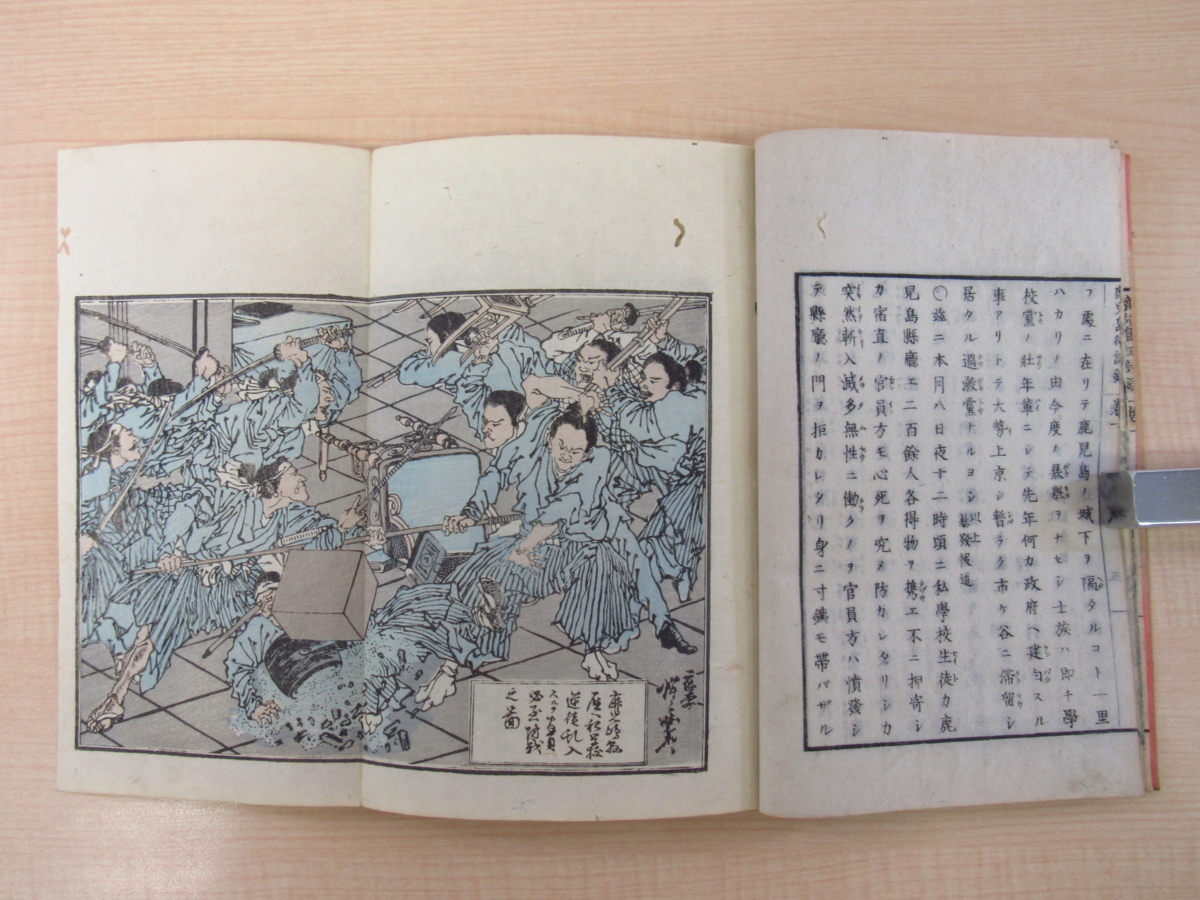 フ處ニ在リテ鹿児島ノ城下ヲ隔タルコト一里
ハカリノ由今度ノ暴擧ヲナセシ士族ハ即チ學
校黨ノ壮年輩ニシテ先年何カ政府ヘ建白スル
事アリトテ大勢上京シ暫ラク市ケ谷ニ滞留シ
居タル過激黨ナルヨシ以上
〇遂ニ本月八日夜十二時頃ニ私學校生徒カ鹿
児島縣廳エ二百餘人各得物ヲ携エ不ニ押寄シ
カ宿直ノ官員方モ心死ヲ究メ防カレタリシカ
突然斬入滅多無性ニ働クノヲ官員方ハ憤發シ
テ縣廳ノ門ヲ拒カレタリ身ニ寸鐵モ帯バザル
鹿児島縣
廳ヘ私学校
逆徒乱入
スルヲ官員
必死防戦
之圖